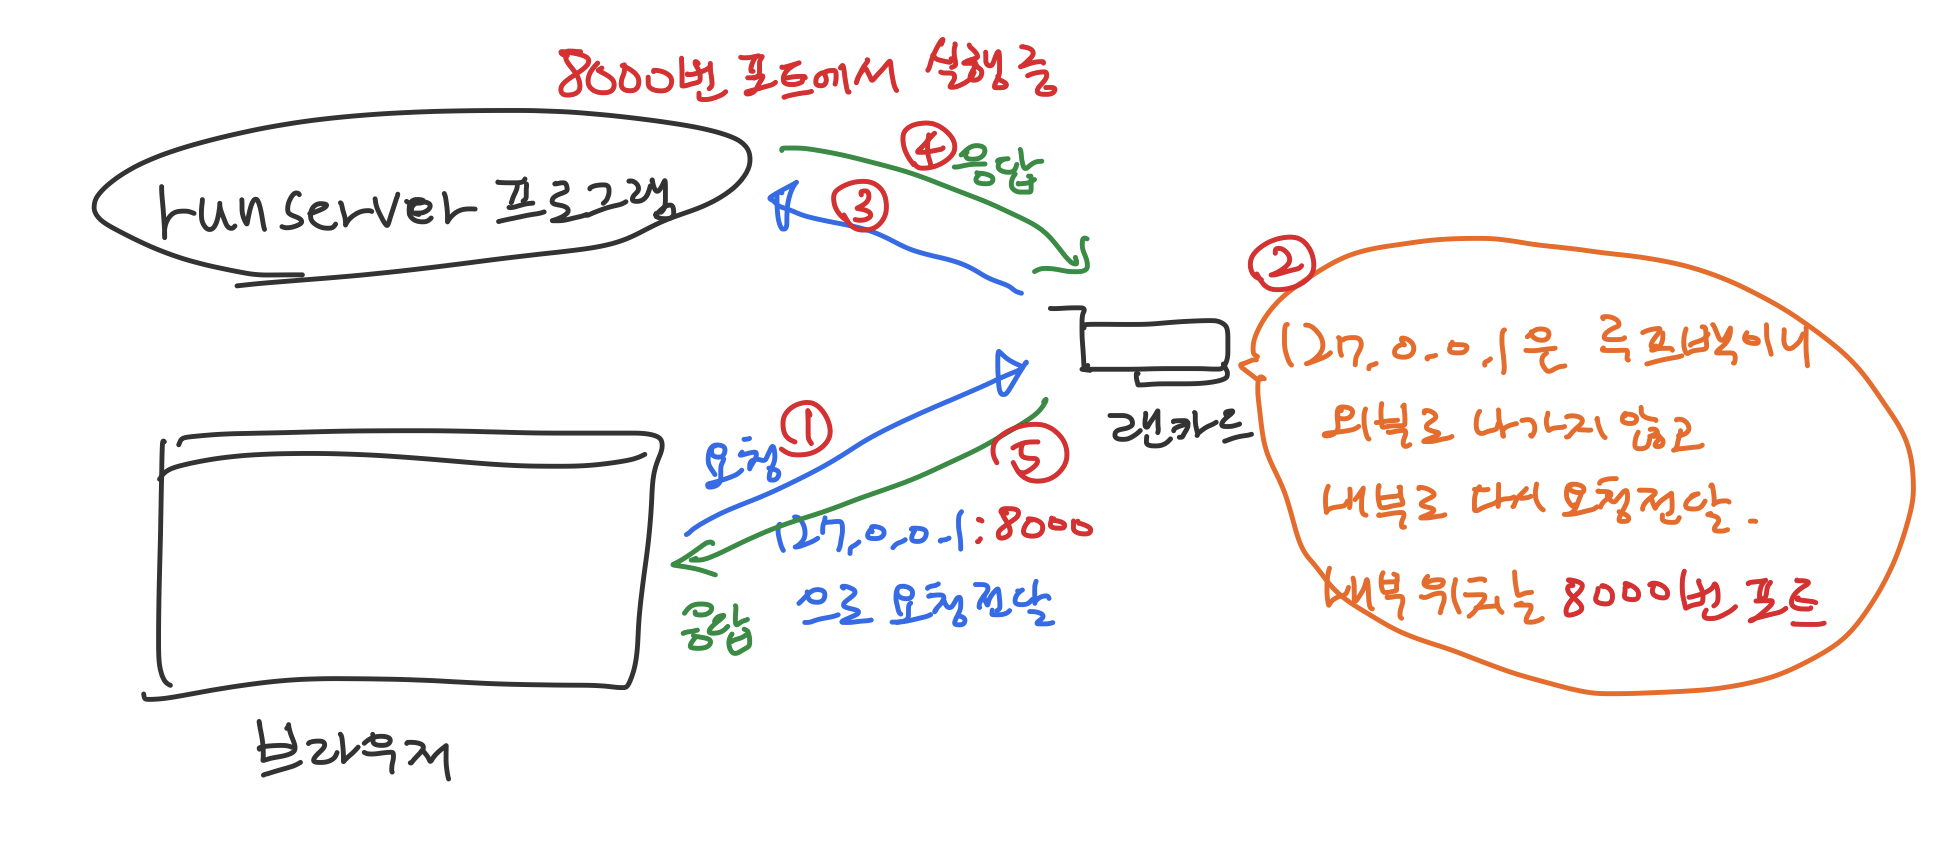 8000번 포트에서 실행 중
④ 응답
runserver 프로그램
③
②
127.0.0.1은 루프백이니
외부로 나가지 않고
내부로 다시 요청전달.
내부 위치는 8000번 포트
랜카드
요청 ①
⑤
127.0.0.1:8000
으로 요청전달
응답
브라우저